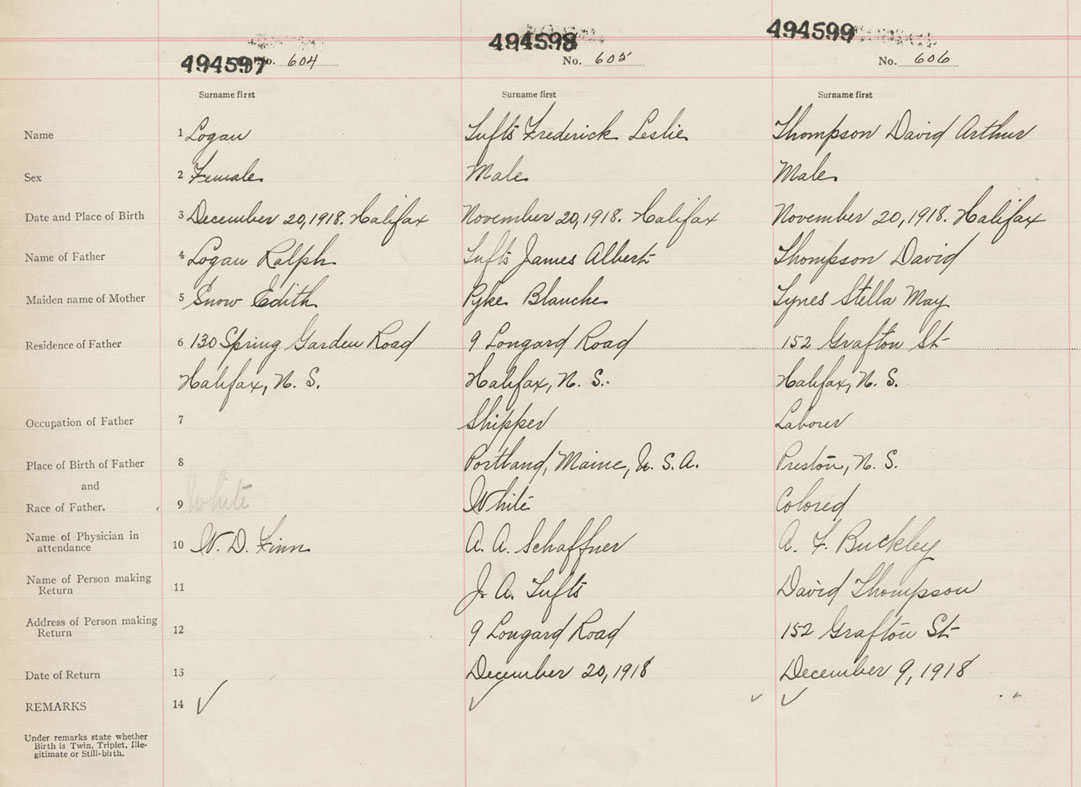 494597 No. 604
494598 No. 605
494599 No. 606
Surname first Surname first Surname first
Name 1 Logan Tufts Frederick Leslie Thompson David Arthur
Sex 2 Female Male Male
Date and Place of Birth 3 December 20, 1918. Halifax November 20, 1918. Halifax November 20, 1918. Halifax
Name of Father 4 Logan Ralph Tufts James Albert Thompson David
Maiden name of Mother 5 Snow Edith Pyke Blanche Tynes Stella May
Residence of Father 6 130 Spring Garden Road 9 Longard Road 152 Grafton St
Halifax, N. S. Halifax, N. S. Halifax, N. S.
Occupation of Father 7 Shipper Laborer
Place of Birth of Father 8 Portland, Maine, U. S. A. Preston, N. S.
and
Race of Father. 9 White White Colored
Name of Physician in attendance 10 W. D. Finn A. A. Schaffner A. F. Buckley
Name of Person making Return 11 J. A. Tufts David Thompson
Address of Person making Return 12 9 Longard Road 152 Grafton St
Date of Return 13 December 20, 1918 December 9, 1918
REMARKS 14 ✓ ✓ ✓ ✓
Under remarks state whether
Birth is Twin, Triplet, Ille-
gitimate or Still-birth.